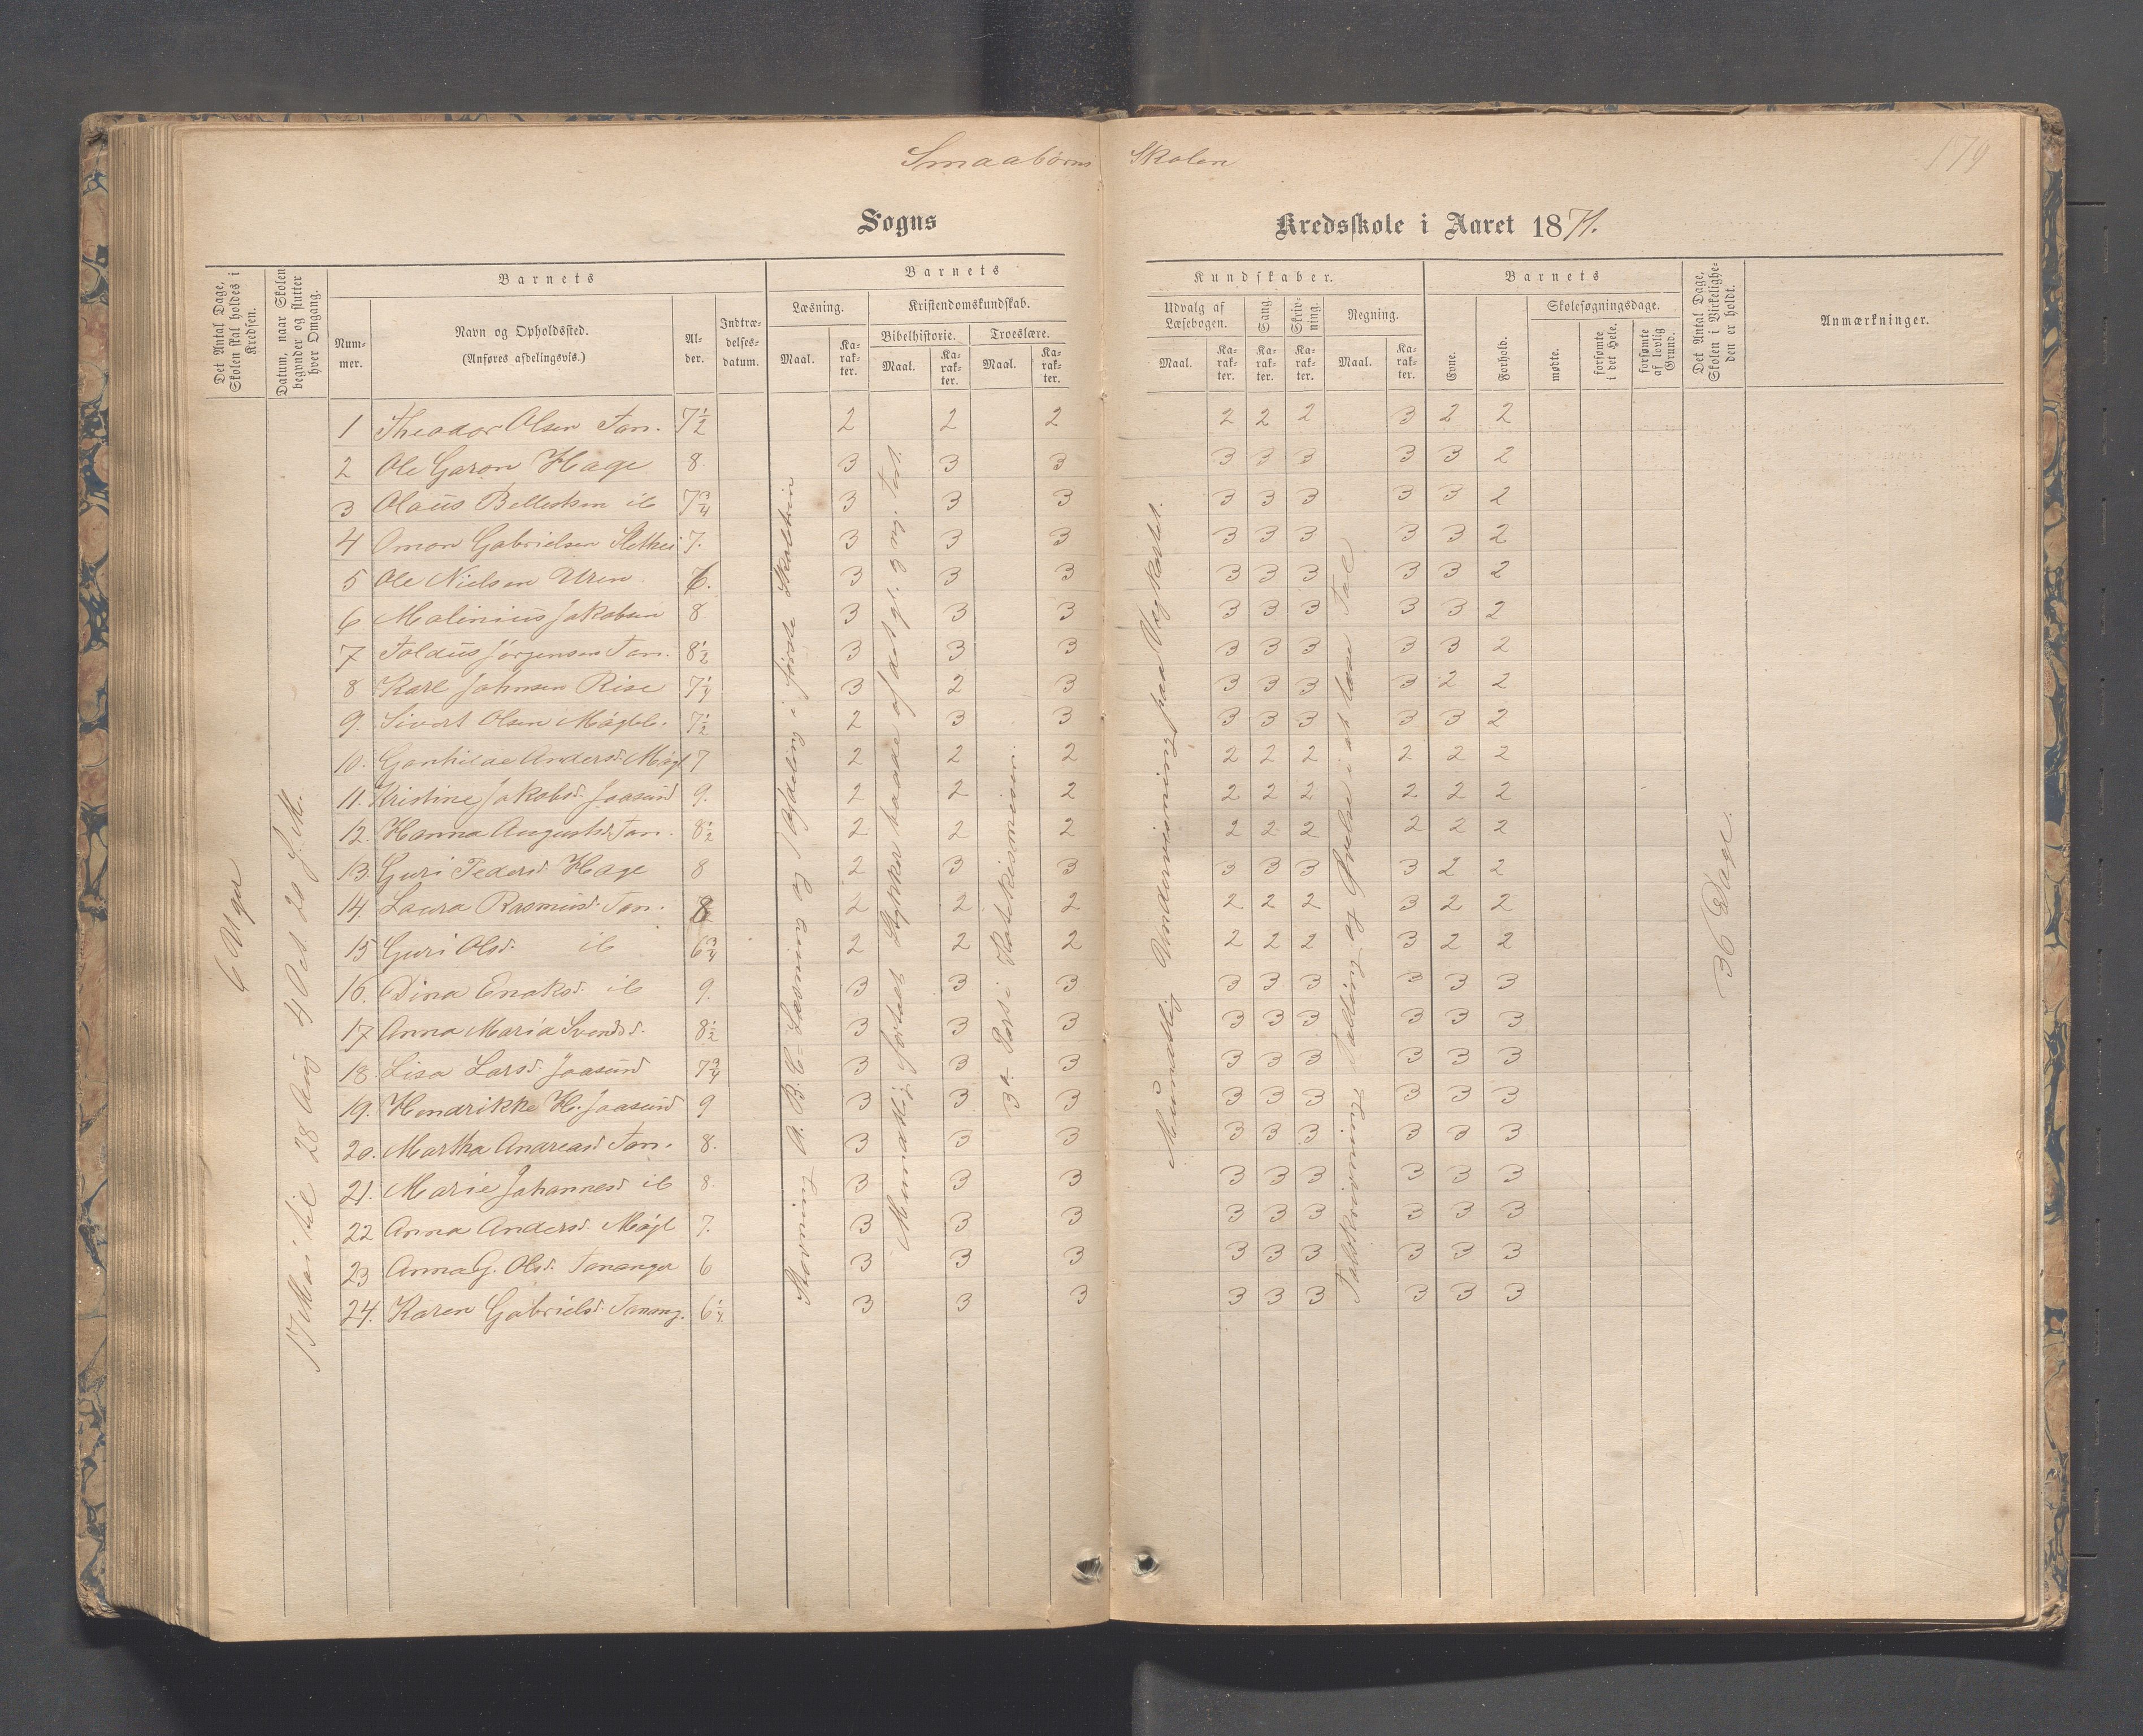 Smaabørns Skolen
179
Sogns Kredsskole i Aaret 1871.
Det Antal Dage, Skolen skal holdes i Kredsen.
Datum, naar Skolen begynder og slutter hver Omgang.
Barnets
Num-mer.
Navn og Opholdssted.
(Anføres afdelingsvis.)
Al-der.
Indtræ-delses-datum.
Barnets Kundskaber.
Læsning.
Maal.
Ka-rak-ter.
Kristendomskundskab.
Bibelhistorie.
Maal.
Ka-rak-ter.
Troeslære.
Maal.
Ka-rak-ter.
Udvalg af Læsebogen.
Maal.
Ka-rak-ter.
Sang.
Ka-rak-ter.
Skriv-ning.
Ka-rak-ter.
Regning.
Maal.
Ka-rak-ter.
Barnets
Evne.
Forhold.
Skolesøgningsdage.
mødte.
forsømte i det Hele.
forsømte af lovlig Grund.
Det Antal Dage, Skolen i Virkelighe-den er holdt.
Anmærkninger.
6 Uger
17 Mai til 28 Aug 4 Oct 20
1 Theodor Olsen Tan. 7½ 2 2 2 2 2 2 3 2 2
2 Ole Garon Hage 8 3 3 3 3 3 3 3 3 2
3 Olaüs Bellestsen ib 7¾ 3 3 3 3 3 3 3 3 2
4 Omon Gabrielsen 7. 3 3 3 3 3 3 3 3 2
5 Ole Nielsen Uren 6. 3 3 3 3 3 3 3 3 2
6 Maliniüs Jakobsen 8 3 3 3 3 3 3 3 3 2
7 Toldüs Jørgensen Tan. 8½ 3 3 3 3 3 3 3 3 2
8 Karl Johnsen Rise 7¼ 3 2 3 3 3 3 3 2 2
9. Sivert Olsen Mágleb. 7½ 2 3 3 3 3 3 3 3 2
10. Gonhilde Andersd. Mágl 7 2 2 2 2 2 2 2 2 2
11. Kristine Jakobsd. Jaasünd 9. 2 2 2 2 2 2 2 2 2
12. Hanna Augustsd. Tan. 8½ 2 2 2 2 2 2 2 2 2
13. Guri Pedersd. Hage 8 2 3 3 3 3 3 3 2 2
14. Laura Rasmusd. Tan. 8 2 2 2 2 2 2 3 2 2
15 Guri Olsd. ib 6¾ 2 2 2 2 2 2 3 2 2
16. Dina Enoksd. ib 9. 3 3 3 3 3 3 3 3 3
17 Anna Maria Svendsd. 8½ 3 3 3 3 3 3 3 3 3
18. Lisa Larsd. Jaasünd 7¾ 3 3 3 3 3 3 3 3 3
19. Hendrikke H. Jaasünd 9 3 3 3 3 3 3 3 3 3
20. Martha Andreasd Tan. 8. 3 3 3 3 3 3 3 3 3
21. Marie Johannesd ib 8. 3 3 3 3 3 3 3 3 3
22 Anna Andersd. Mágl 7. 3 3 3 3 3 3 3 3 3
23 Anna G. Olsd. Tananger 6 3 3 3 3 3 3 3 3 3
24. Karen Gabrielsd. Tanang. 6¼ 3 3 3 3 3 3 3 3 3
Stavning A. B. C Læsning og Afdeling i første Skoletrin
Mundtlig fortalt Stykker baade af det gl. og ny. Test.
3die Part i Katekismusen.
Mundtlig Undervisning paa Vegkartet.
Talskrivning Tælling og Øvelse i at læse Tal
36 Dage.